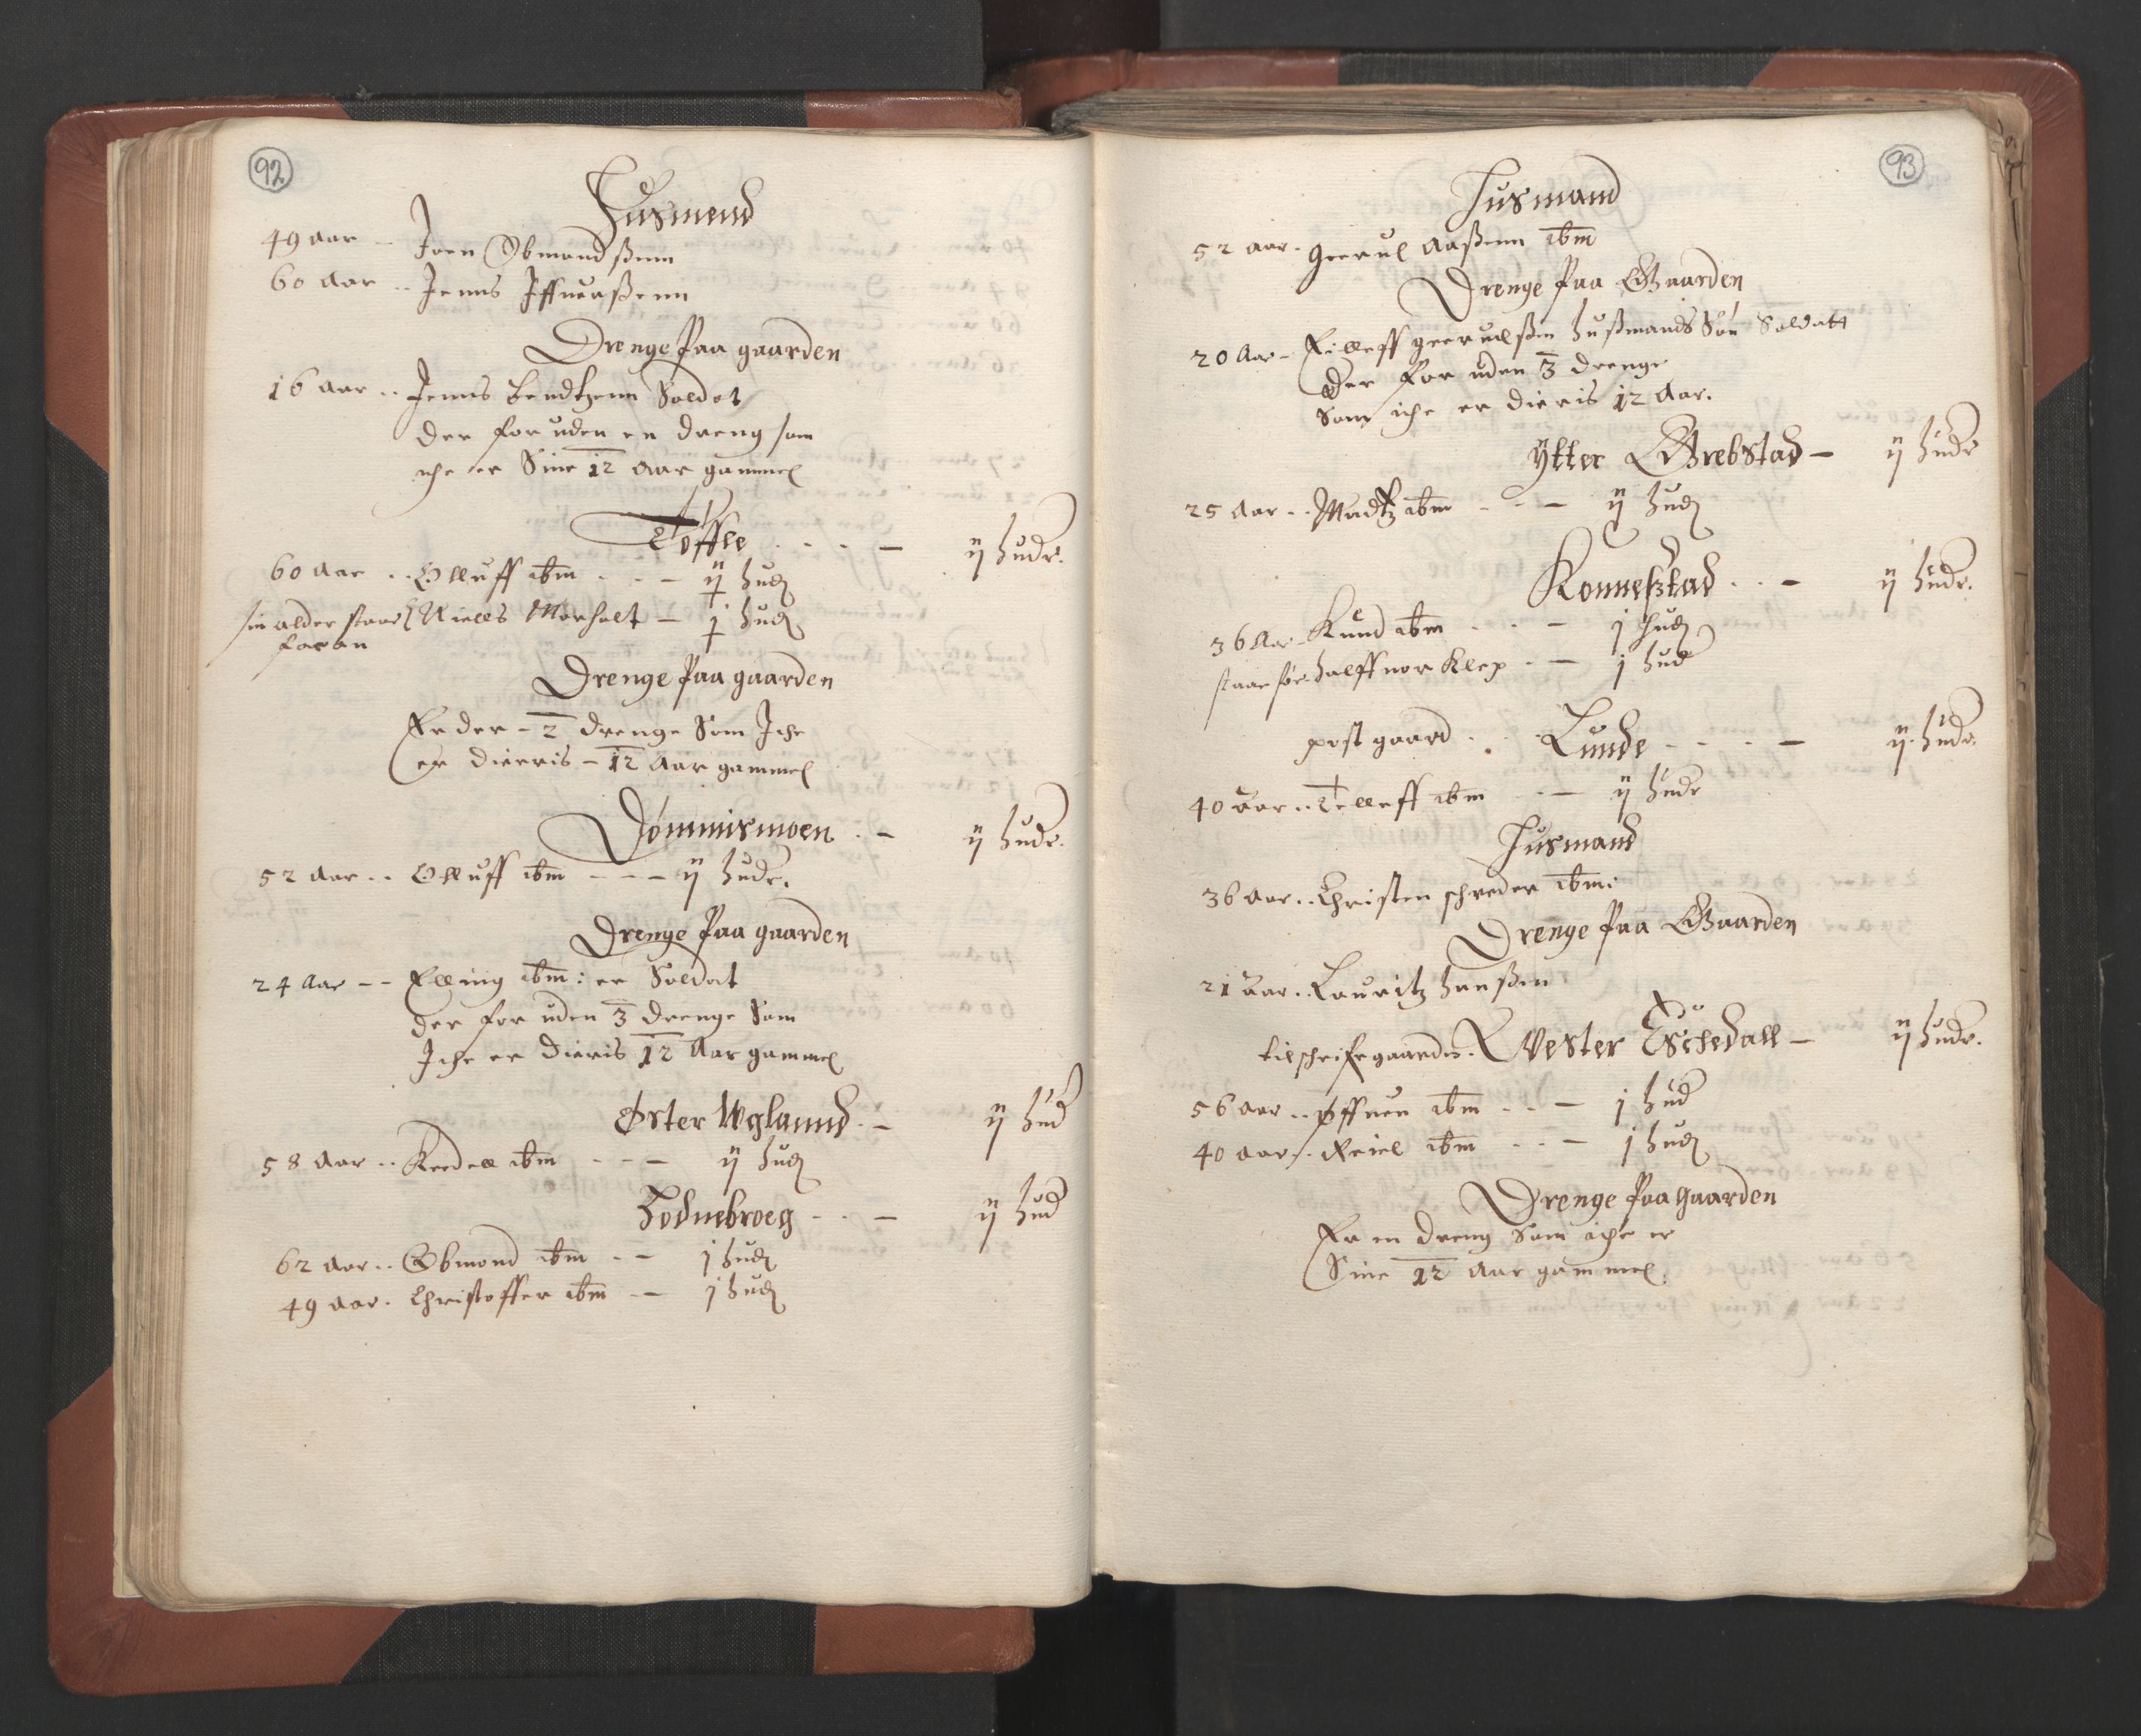 92
Husmend
49 aar – Joen Obmandßenn
60 aar .. Jenns Iffuerßenn
Drenge Paa gaarden
16 aar .. Jenns Bendtzenn Soldat
der foruden en dreng som
iche er Sine 12 aar gammel
Toffle . . . – ij hudr.
60 aar .. Olluff ibm . . – ij hud
sin alder staar Niells Morholt – j hud
foran
Drenge Paa gaarden
Er der – 2 drenge Som Iche
er dieris – 12 aar gammel
Dömmismoen . – ij hudr.
52 aar .. Olluff ibm – – – ij hudr.
Drenge Paa gaarden
24 aar – – Elling ibm: er Soldat
der foruden 3 drenge Som
Iche er dieris 12 aar gammel
Øster Uglannd . – ij hud
58 aar .. Keedell ibm . – – ij hud
Hodnebroeg . . – ij hud
62 aar .. Obmond ibm . – j hud
49 aar . Christoffer ibm – j hud
93
Husmand
52 aar . geerul Aaßenn ibm
Drenge Paa Gaarden
20 Aar – Eilleff geerulßen hußmands Sön Soldatt
der foruden 3 drenge
Som iche er dieris 12 Aar.
Ytter Grebstad – ij hudr
25 Aar .. Madtz ibm . – – ij hud
Konneßtad . . – ij hudr.
36 Aar – Knud ibm . . – j hud
staar för halffuor Klep . – j hud
post gaard . . . Lunde . . . – ij hudr.
40 aar .. Telleff ibm . – ij hudr
Husmand
36 aar .. Christen schreder ibm:
Drenge Paa Gaarden
21 aar .. Lauritz hanßen
Vester Eschedall – ij hudr.
56 aar .. Øffuen ibm . . – j hud
40 aar .. Keiel ibm . . – j hud
Drenge Paa Gaarden
Er en dreng Som iche er
Sine 12 aar gammel.